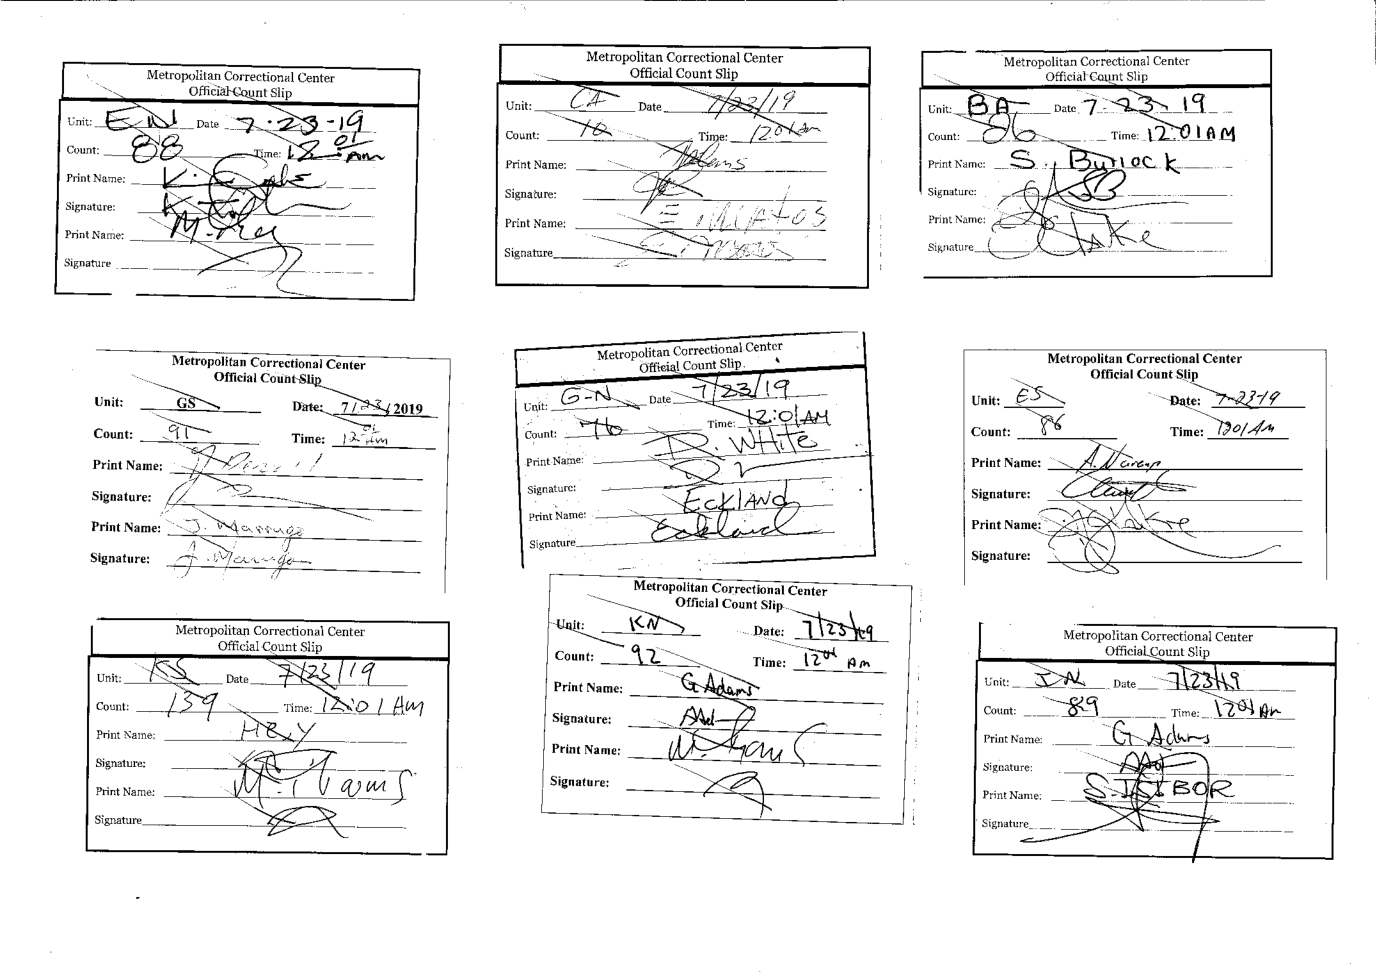 Metropolitan Correctional Center
Official Count Slip
Unit: EN Date 7-23-19
Count: 88 Time: 12 01 Am
Print Name: K.
Signature: K.
Print Name:
Signature
Metropolitan Correctional Center
Official Count Slip
Unit: CA Date 7/23/19
Count: 10 Time: 1201am
Print Name:
Signature:
Print Name: E. Mentos
Signature
Metropolitan Correctional Center
Official Count Slip
Unit: BA Date 7-23-19
Count: 26 Time: 12:01AM
Print Name: S. Burlock
Signature: SB
Print Name:
Signature
Metropolitan Correctional Center
Official Count Slip
Unit: GS Date: 7/23/2019
Count: 91 Time: 12 01 am
Print Name:
Signature:
Print Name: J. Marrugo
Signature: J. Marrugo
Metropolitan Correctional Center
Official Count Slip
Unit: G-N Date 7/23/19
Count: 76 Time: 12:01AM
Print Name: D. WHite
Signature:
Print Name: EcklANd
Signature Eckland
Metropolitan Correctional Center
Official Count Slip
Unit: ES Date: 7-23-19
Count: 86 Time: 1201Am
Print Name: A.
Signature:
Print Name:
Signature:
Metropolitan Correctional Center
Official Count Slip
Unit: KS Date 7/23/19
Count: 139 Time: 12:01 AM
Print Name:
Signature:
Print Name: M.
Signature
Metropolitan Correctional Center
Official Count Slip
Unit: KN Date: 7/23/19
Count: 92 Time: 1201 Am
Print Name: G Adams
Signature:
Print Name: M.
Signature:
Metropolitan Correctional Center
Official Count Slip
Unit: IN Date 7/23/19
Count: 89 Time: 1201 Am
Print Name: G Adams
Signature:
Print Name: S. ISIBOR
Signature